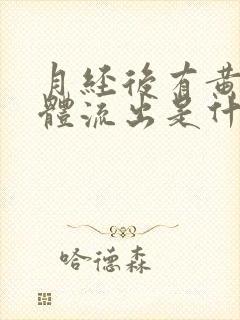 月經後有黃
體流出是什
哈德森